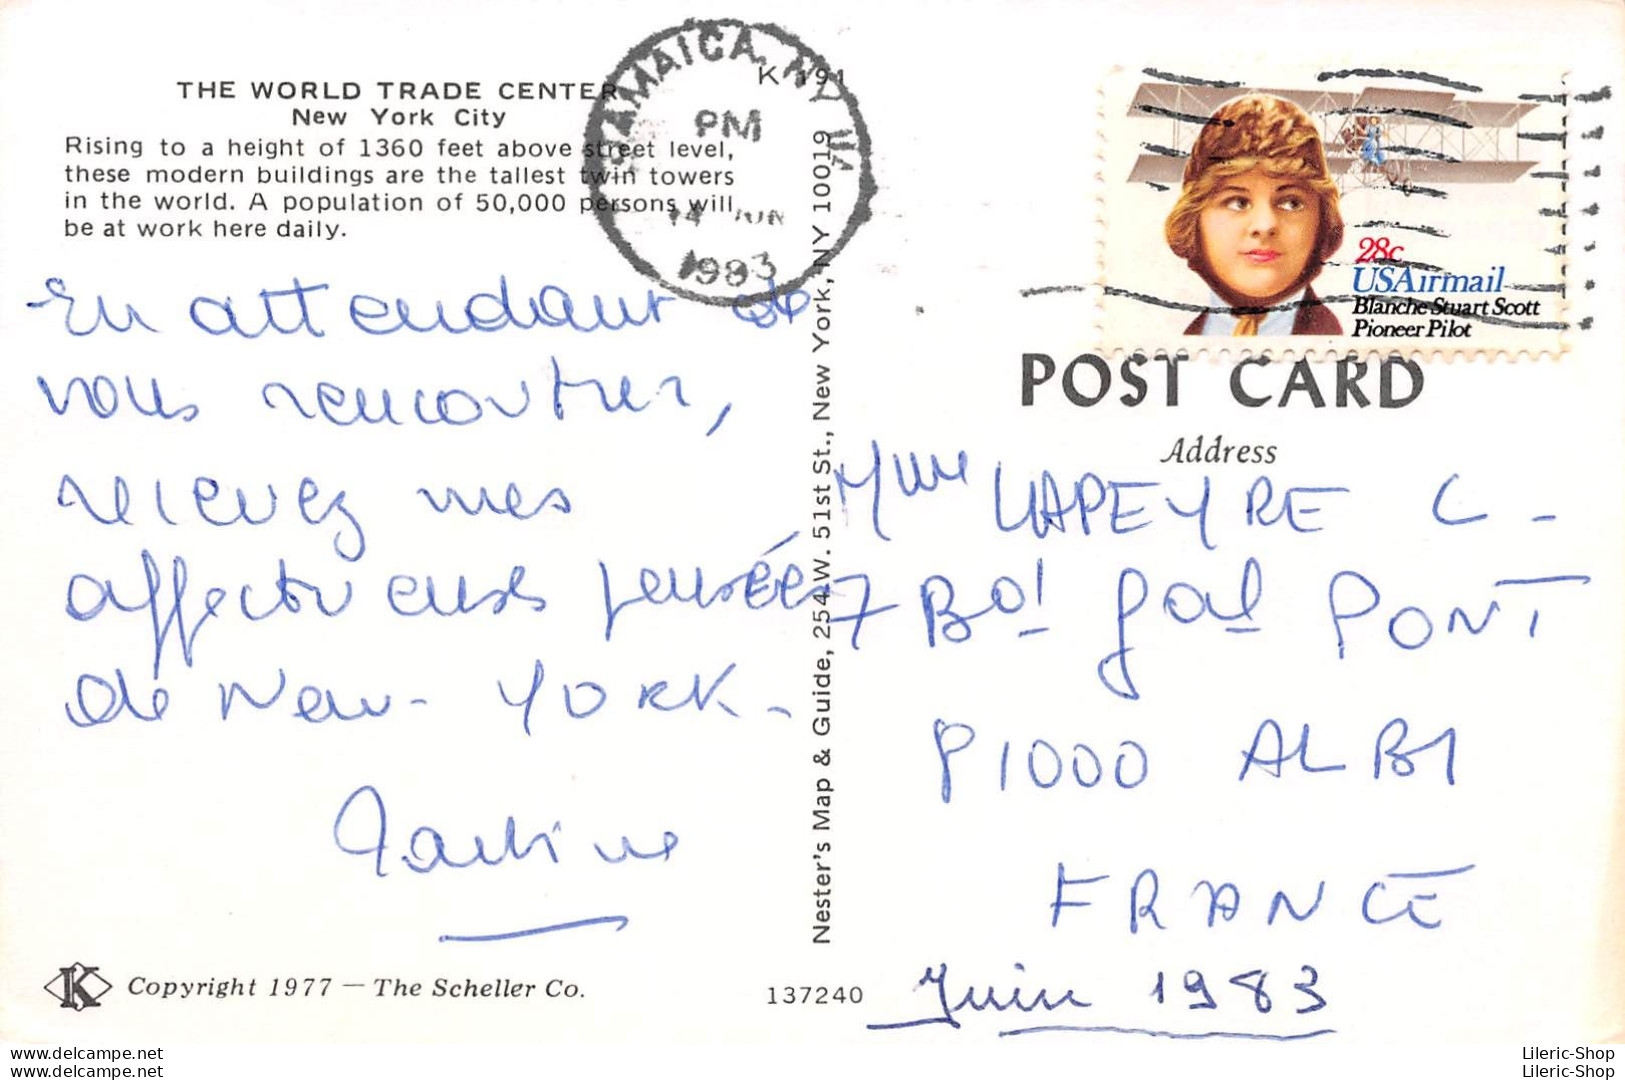 THE WORLD TRADE CENTER
New York City
Rising to a height of 1360 feet above street level,
these modern buildings are the tallest twin towers
in the world. A population of 50,000 persons will
be at work here daily.
K 191
JAMAICA, NY
PM
14 JUN
1983
28c
USAirmail
Blanche Stuart Scott
Pioneer Pilot
POST CARD
Address
En attendant de
vous rencontrer,
recevez mes
affectueuses pensées
de New-YORK-
Martine
Nester's Map & Guide, 254 W. 51st St., New York, NY 10019
Mme LAPEYRE C-
7 Bd Gal PONT
81000 ALBI
FRANCE
Juin 1983
K Copyright 1977 — The Scheller Co.
137240
delcampe.net
delcampe.net
Lileric-Shop
Lileric-Shop